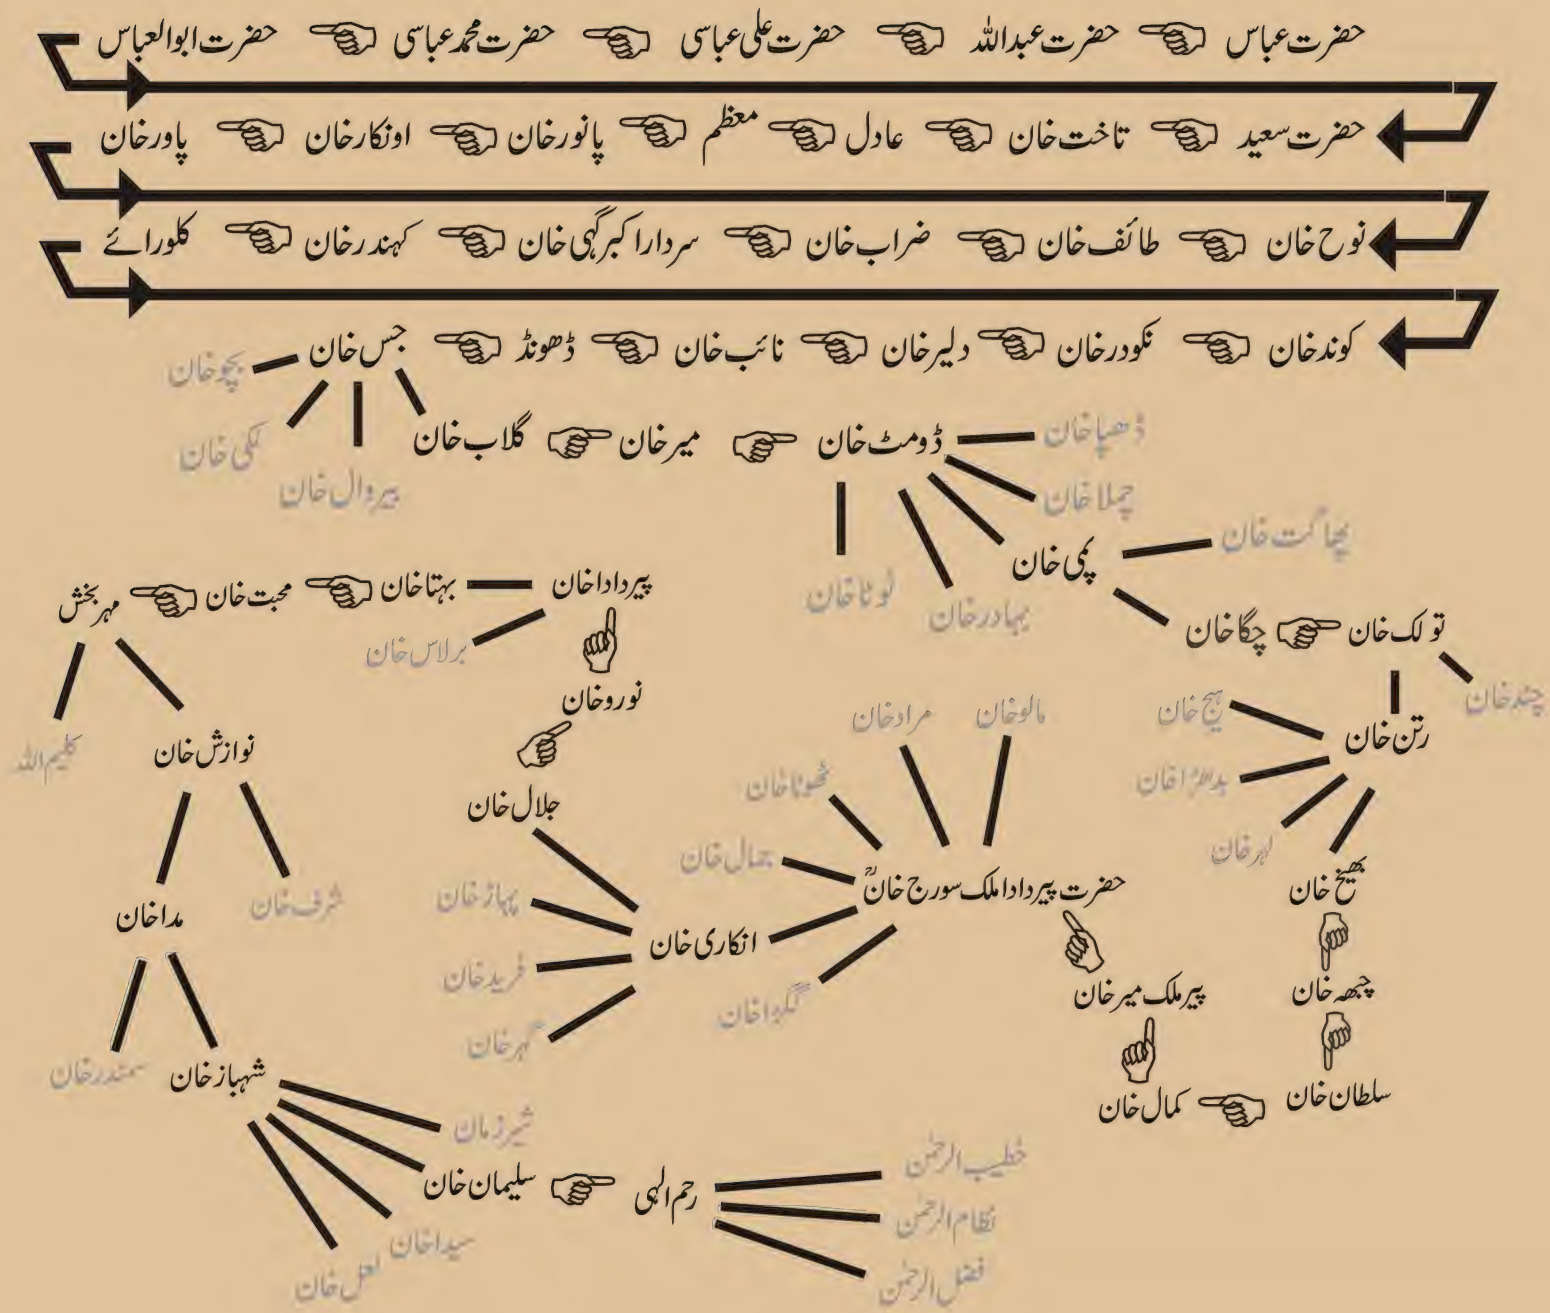 حضرت عباس حضرت عبداللہ حضرت علی عباسی حضرت محمد عباسی حضرت ابوالعباس
حضرت سعید تاخت خان عادل معظم پانور خان اونکار خان پاور خان
نوح خان طائف خان ضراب خان سردار اکبر گہی خان کہندر خان کلورائے
کوند خان نکودر خان دلیر خان نائب خان ڈھونڈ جس خان
بچو خان
لکی خان
پیروال خان
گلاب خان میر خان ڈومٹ خان ڈھپا خان
چملا خان
لوٹا خان
بہادر خان
پمی خان
پھاگت خان
چگا خان تولک خان
چند خان
رتن خان
پیج خان
بدھڑا خان
لہر خان
بھیخ خان
چبھہ خان
سلطان خان کمال خان
پیر ملک میر خان
حضرت پیر دادا ملک سورج خانؒ
مالو خان
مراد خان
ٹھوٹا خان
جمال خان
انکاری خان
گکڑا خان
پہاڑ خان
فرید خان
گہر خان
جلال خان
نورو خان
پیر دادا خان
برلاس خان
بہتا خان محبت خان مہر بخش
کلیم اللہ
نوازش خان
شرف خان
مدا خان
سمندر خان
شہباز خان
شیر زمان
سلیمان خان رحم الہی
سیدا خان
لعل خان
خطیب الرحمٰن
نظام الرحمٰن
فضل الرحمٰن